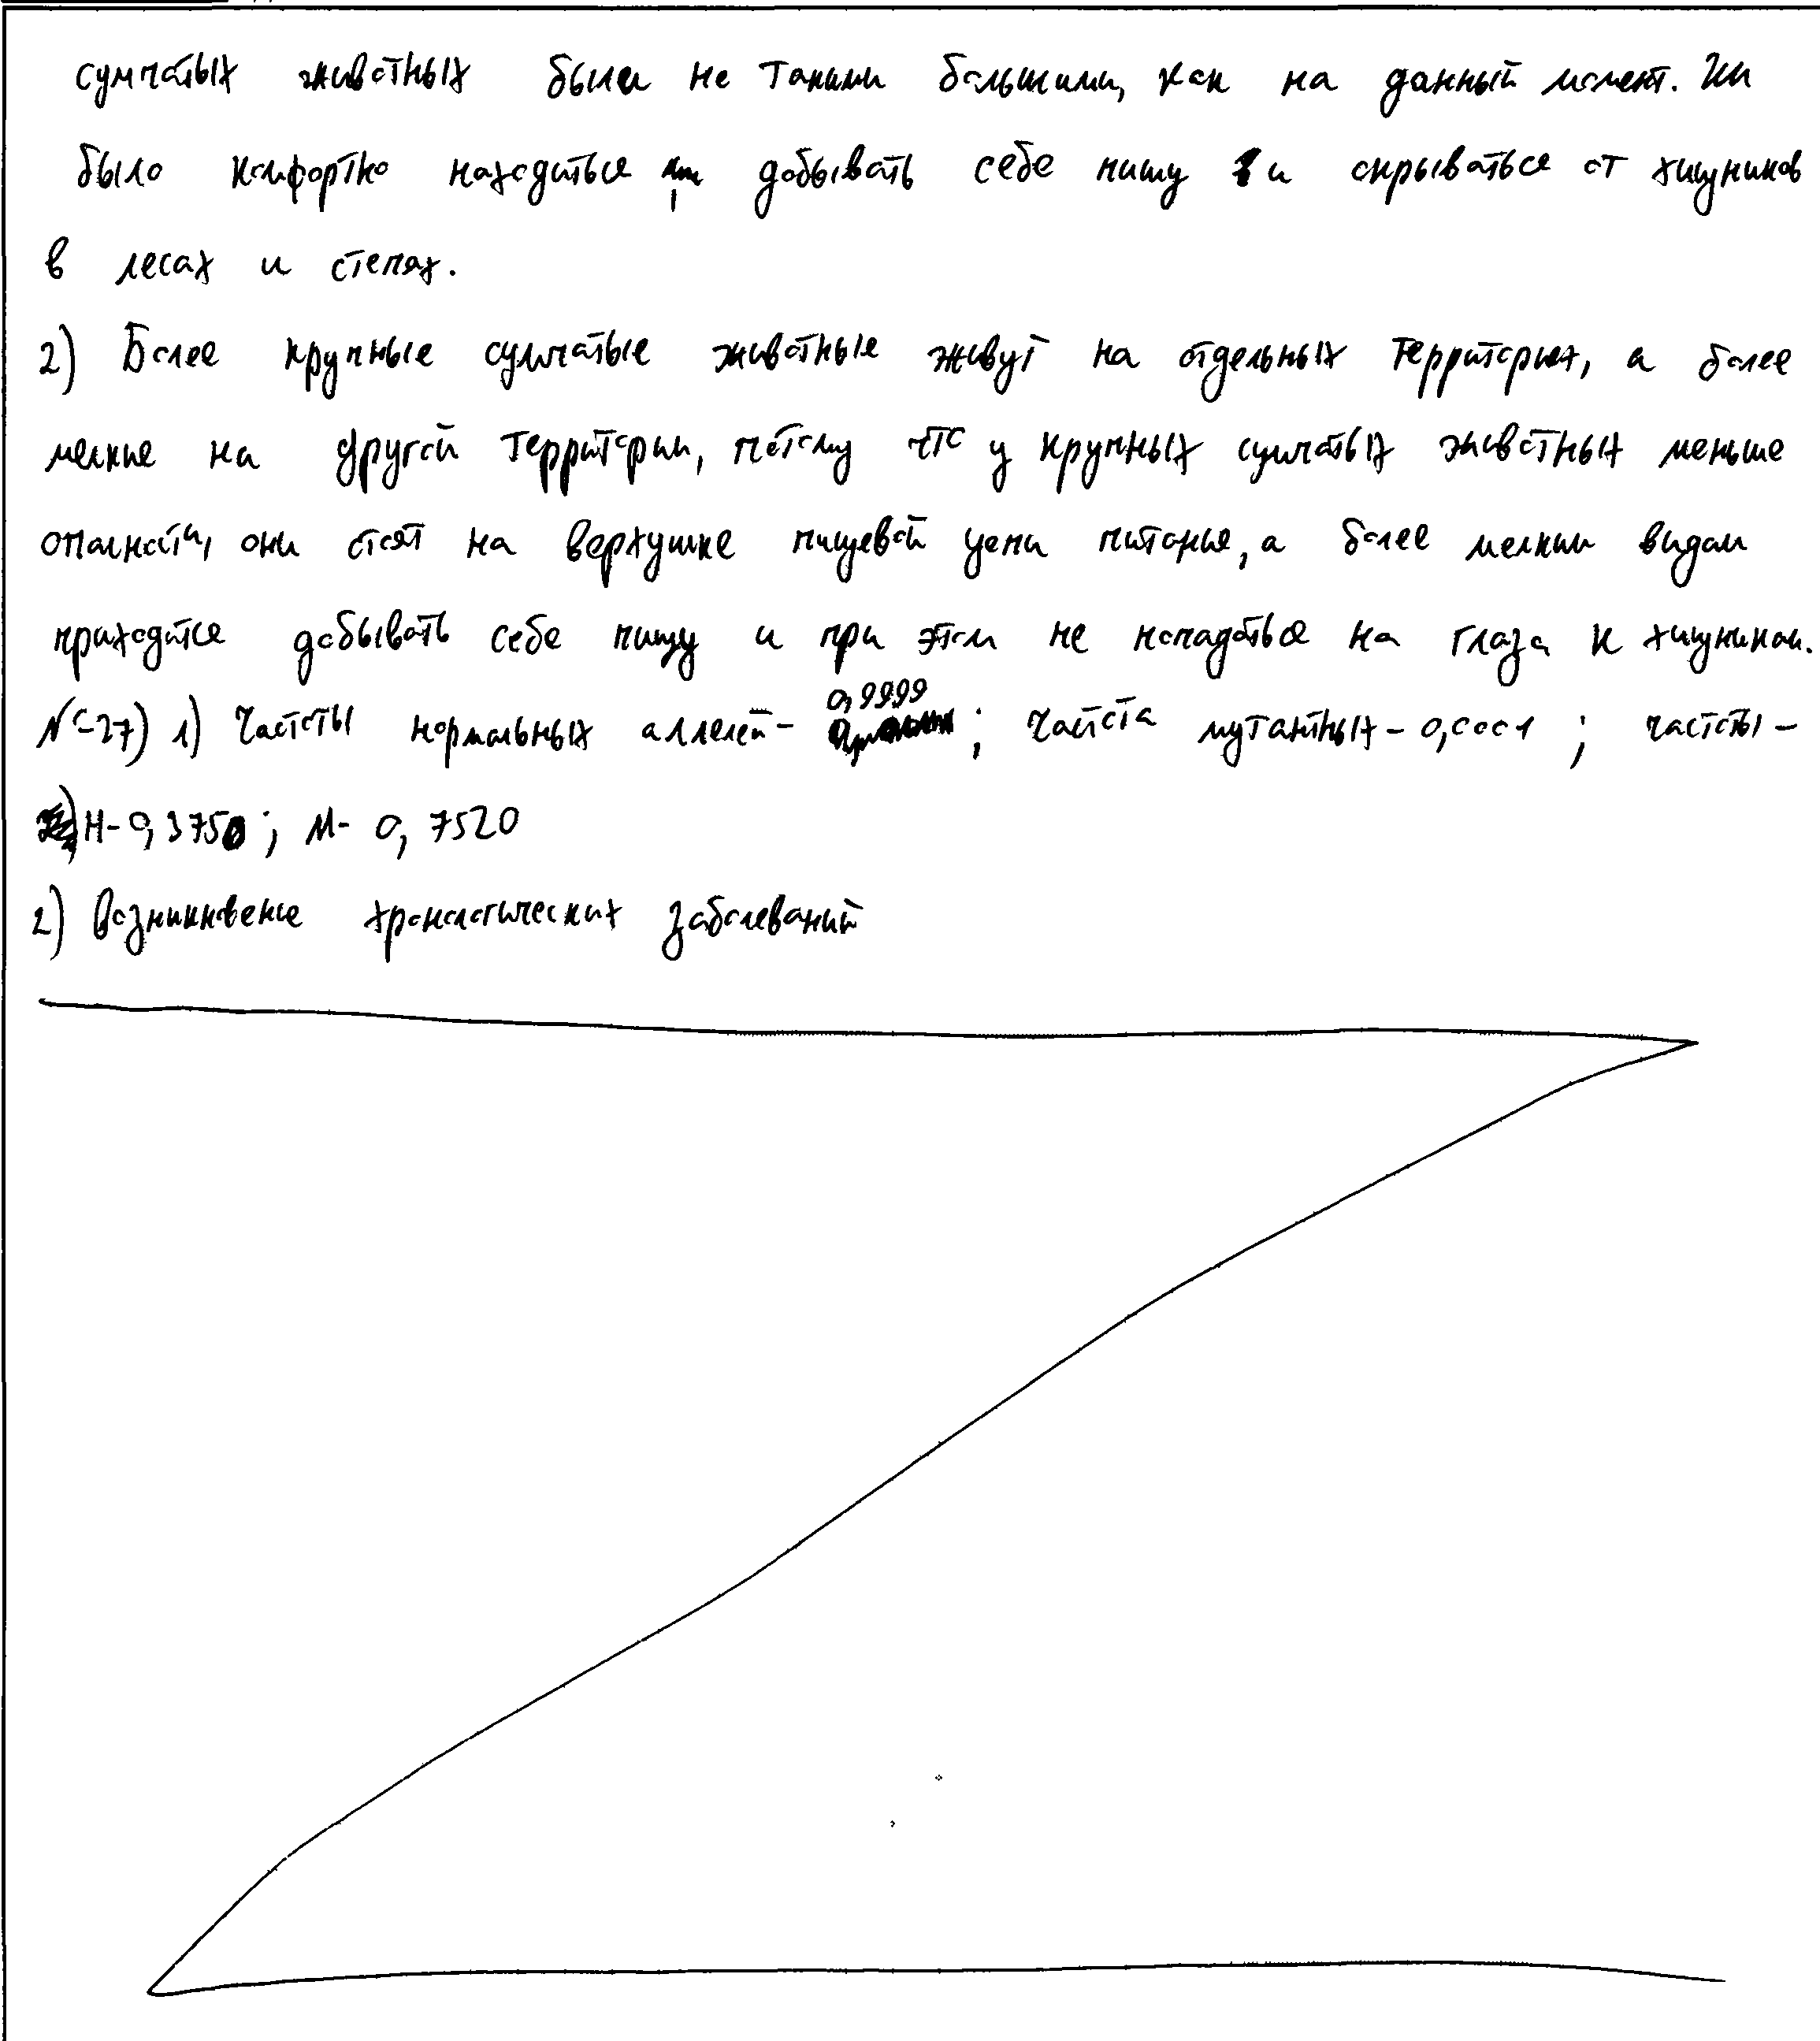 сумчатых животных были не такими большими, как на данный момент. Им
было комфортно находиться, добывать себе пищу и скрываться от хищников
в лесах и степях.
2) Более крупные сумчатые животные живут на отдельных территориях, а более
мелкие на другой территории, потому что у крупных сумчатых животных меньше
опасности, они стоят на верхушке пищевой цепи питания, а более мелким видам
приходится добывать себе пищу и при этом не попадаться на глаза к хищникам.
№-27) 1) Частоты нормальных аллелей - 0,9999 ; частота мутантных - 0,0001 ; частоты -
Н - 0,3750 ; М - 0,7520
2) Возникновение хронологических заболеваний